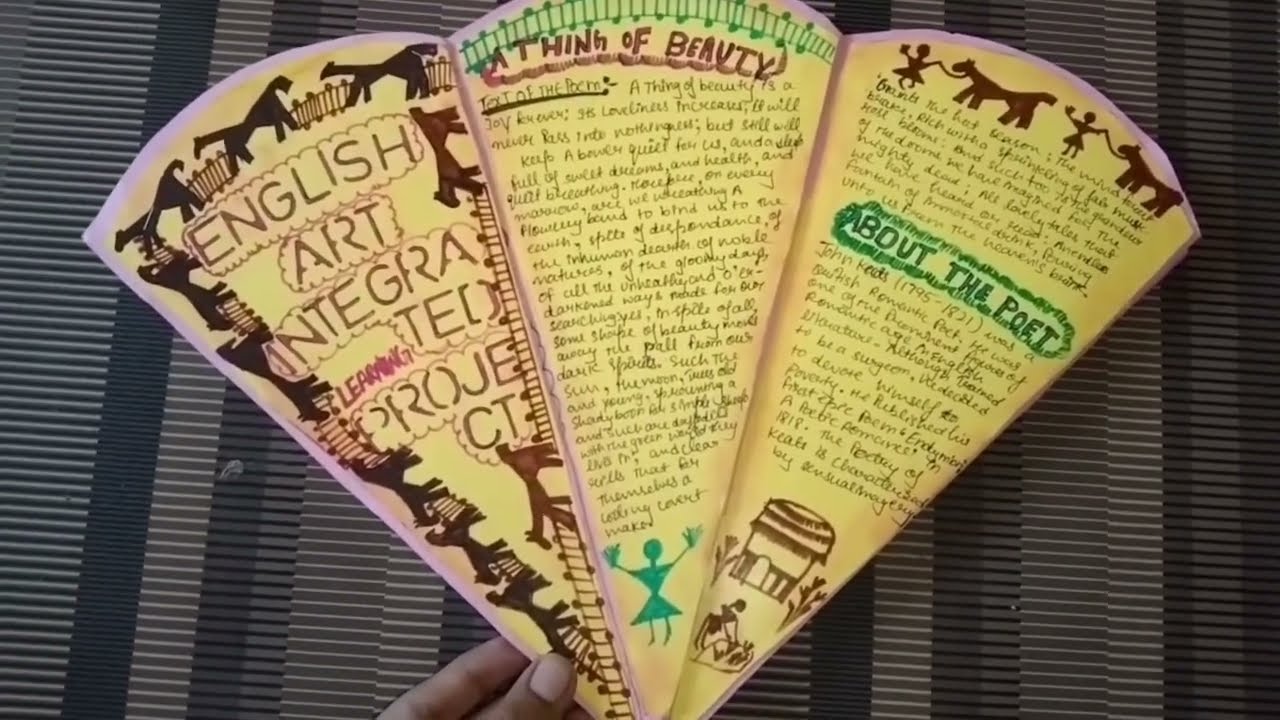 ENGLISH
ART
INTEGRA
TED
LEARNING
PROJE
CT
A THING OF BEAUTY
TEXT OF THE POEM:- A Thing of beauty is a
Joy forever: Its Loveliness increases; It will
never Pass into nothingness; but still will
keep A bower quiet for us, and a sleep
full of sweet dreams, and health, and
quiet breathing. Therefore, on every
morrow, are we wreathing A
flowery band to bind us to the
earth, spite of despondance, of
the inhuman dearth of noble
natures, of the gloomy days,
of all the unhealthy and o'er-
darkened ways made for our
searching: yes, in spite of all,
some shape of beauty moves
away the pall from our
dark spirits. Such the
sun, the moon, Trees old
and young, sprouting a
shady boon for simple sheep
and such are daffodils
with the green world they
live in; and clear
rills that for
themselves a
cooling covert
make
'Grants the hot season; The mid forest
brake, Rich with a sprinkling of fair musk
rose blooms: And such too is the grandeur
of the dooms we have imagined for the
mighty dead; All lovely tales that
we have heard or read; An endless
fountain of immortal drink, Pouring
unto us from the heaven's brink.
ABOUT THE POET
John Keats (1795-1821) was a
British Romantic Poet. He was
one of the Prominent figures of
Romantic age in English
literature. Although Trained
to be a surgeon, he decided
to devote himself to
Poverty. He Published his
first epic Poem 'Endymion:
A Poetic Romance' in
1818. The Poetry of
Keats is characterised
by sensual imagery